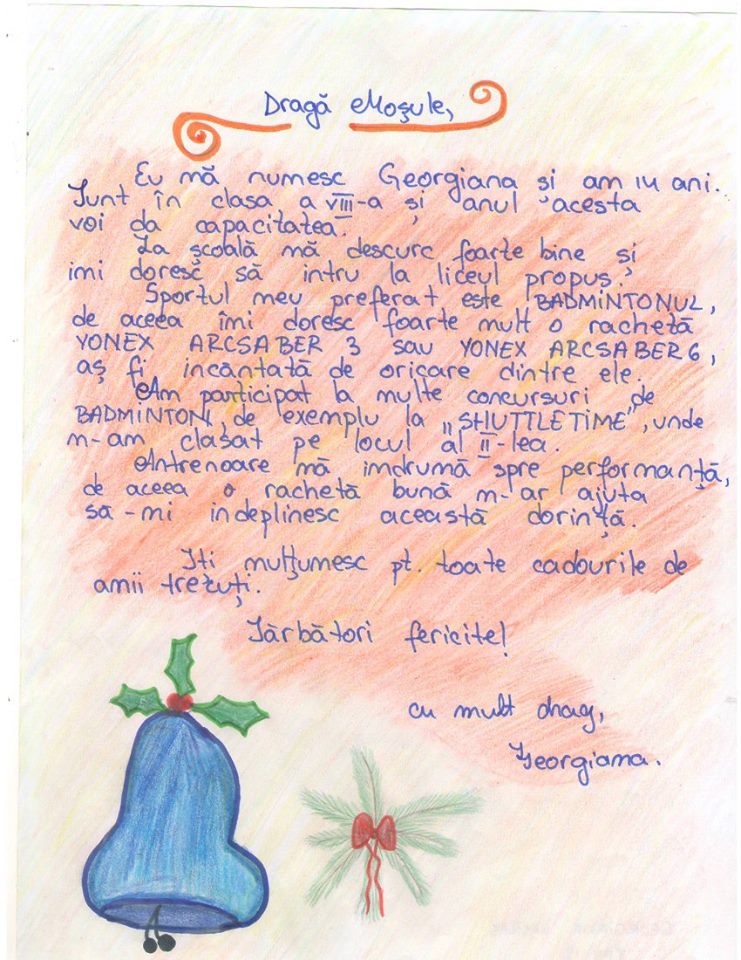 Dragă Moşule,
Eu mă numesc Georgiana şi am 14 ani.
Sunt în clasa a VIII-a şi anul acesta
voi da capacitatea.
La şcoală mă descurc foarte bine şi
imi doresc să intru la liceul propus.
Sportul meu preferat este BADMINTONUL,
de aceea îmi doresc foarte mult o rachetă
YONEX ARCSABER 3 sau YONEX ARCSABER 6,
aş fi incântată de oricare dintre ele.
Am participat la multe concursuri de
BADMINTON, de exemplu la „SHUTTLE TIME”, unde
m-am clasat pe locul al II-lea.
Antrenoare mă indrumă spre performanţă,
de aceea o rachetă bună m-ar ajuta
să-mi indeplinesc această dorinţă.
Iti mulţumesc pt. toate cadourile de
anii trecuţi.
Sărbători fericite!
cu mult drag,
Georgiana.